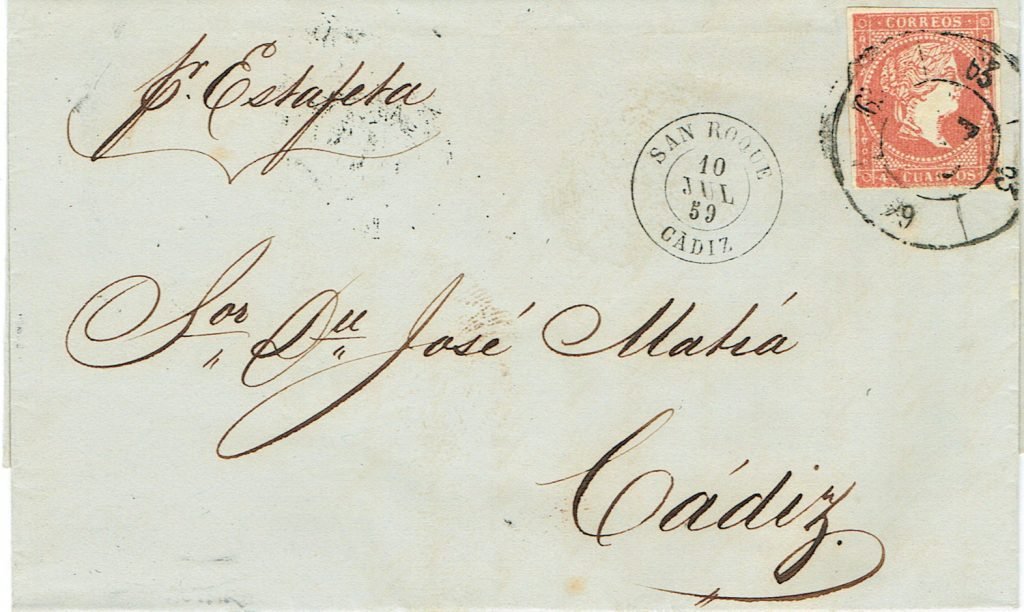 pr. Estafeta
CORREOS
4 CUARTOS
SAN ROQUE
10
JUL
59
CÁDIZ
Sor Dn José Matiá
Cádiz